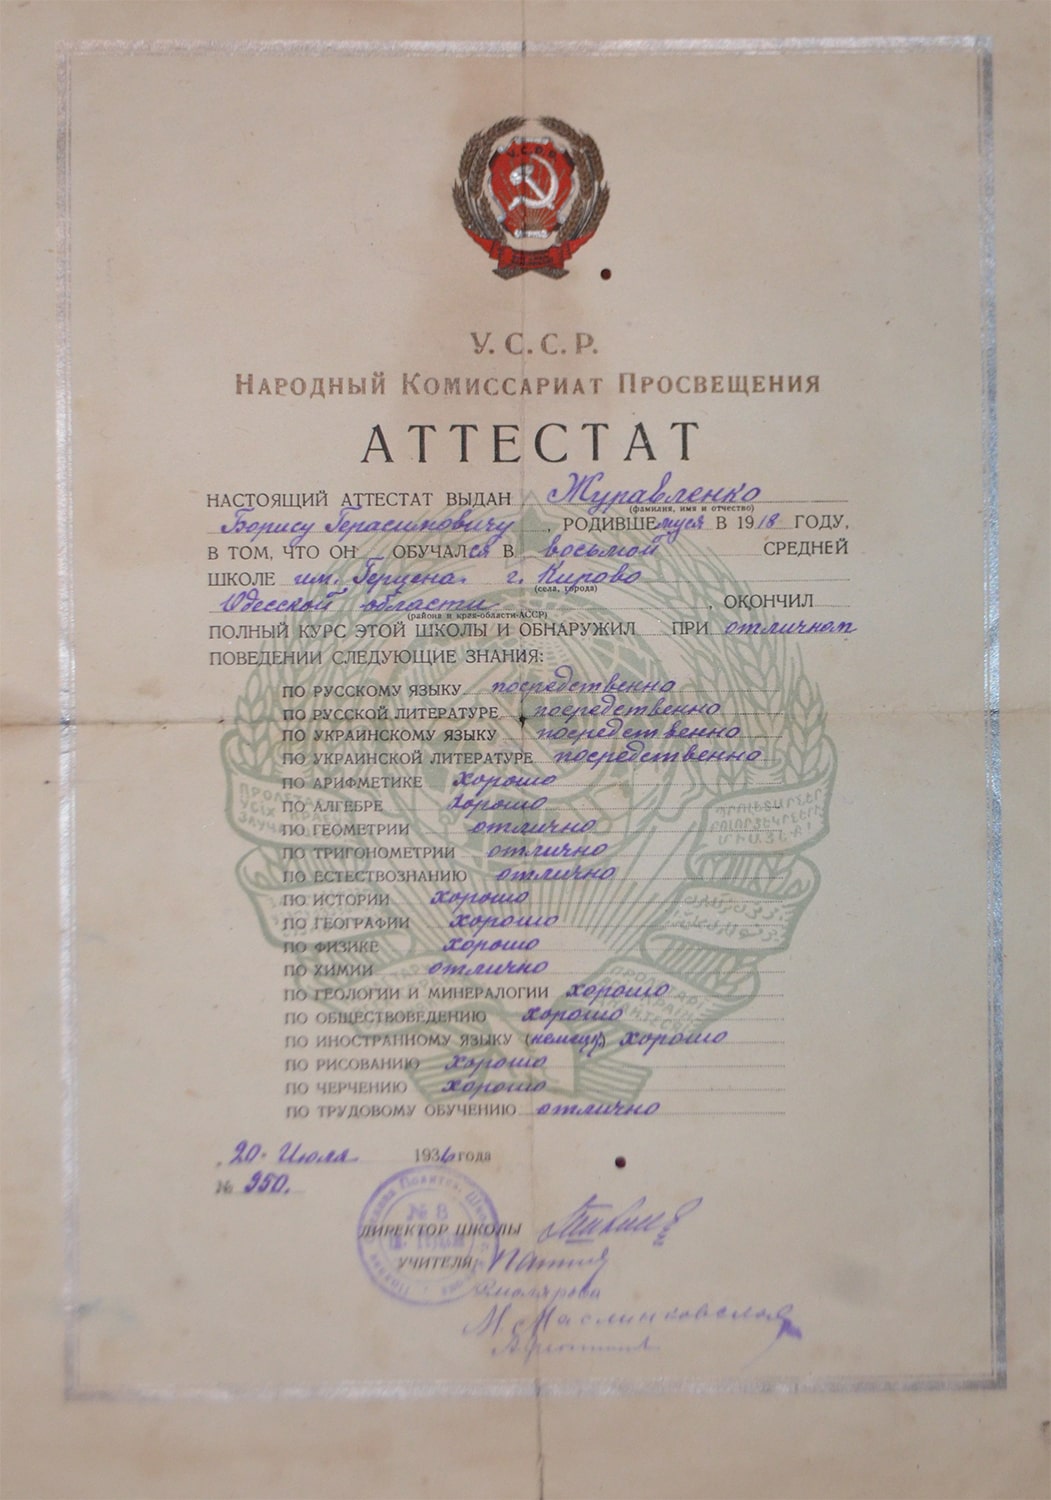 У.С.С.Р.
У. С. С. Р.
НАРОДНЫЙ КОМИССАРИАТ ПРОСВЕЩЕНИЯ
АТТЕСТАТ
НАСТОЯЩИЙ АТТЕСТАТ ВЫДАН Журавленко
(фамилия, имя и отчество)
Борису Герасимовичу, РОДИВШЕмуся В 1918 ГОДУ,
В ТОМ, ЧТО ОН ОБУЧАЛся В восьмой СРЕДНЕЙ
ШКОЛЕ им. Герцена. г. Кирово
(села, города)
Одесской области, ОКОНЧИЛ
(района и края-области-АССР)
ПОЛНЫЙ КУРС ЭТОЙ ШКОЛЫ И ОБНАРУЖИЛ ПРИ отличном
ПОВЕДЕНИИ СЛЕДУЮЩИЕ ЗНАНИЯ:
ПО РУССКОМУ ЯЗЫКУ посредственно
ПО РУССКОЙ ЛИТЕРАТУРЕ посредственно
ПО УКРАИНСКОМУ ЯЗЫКУ посредственно
ПО УКРАИНСКОЙ ЛИТЕРАТУРЕ посредственно
ПО АРИФМЕТИКЕ хорошо
ПО АЛГЕБРЕ хорошо
ПО ГЕОМЕТРИИ отлично
ПО ТРИГОНОМЕТРИИ отлично
ПО ЕСТЕСТВОЗНАНИЮ отлично
ПО ИСТОРИИ хорошо
ПО ГЕОГРАФИИ хорошо
ПО ФИЗИКЕ хорошо
ПО ХИМИИ отлично
ПО ГЕОЛОГИИ И МИНЕРАЛОГИИ хорошо
ПО ОБЩЕСТВОВЕДЕНИЮ хорошо
ПО ИНОСТРАННОМУ ЯЗЫКУ (немецк.) хорошо
ПО РИСОВАНИЮ хорошо
ПО ЧЕРЧЕНИЮ хорошо
ПО ТРУДОВОМУ ОБУЧЕНИЮ отлично
20. Июля 1936 года
№ 350.
№ 8
ДИРЕКТОР ШКОЛЫ
УЧИТЕЛЯ:
Смолярова
М. Маслинковская